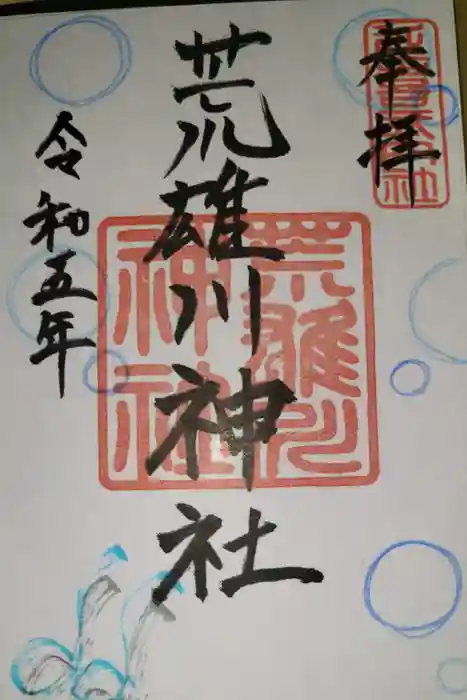 奉拝
荒雄川神社
令和五年
荒雄川神社